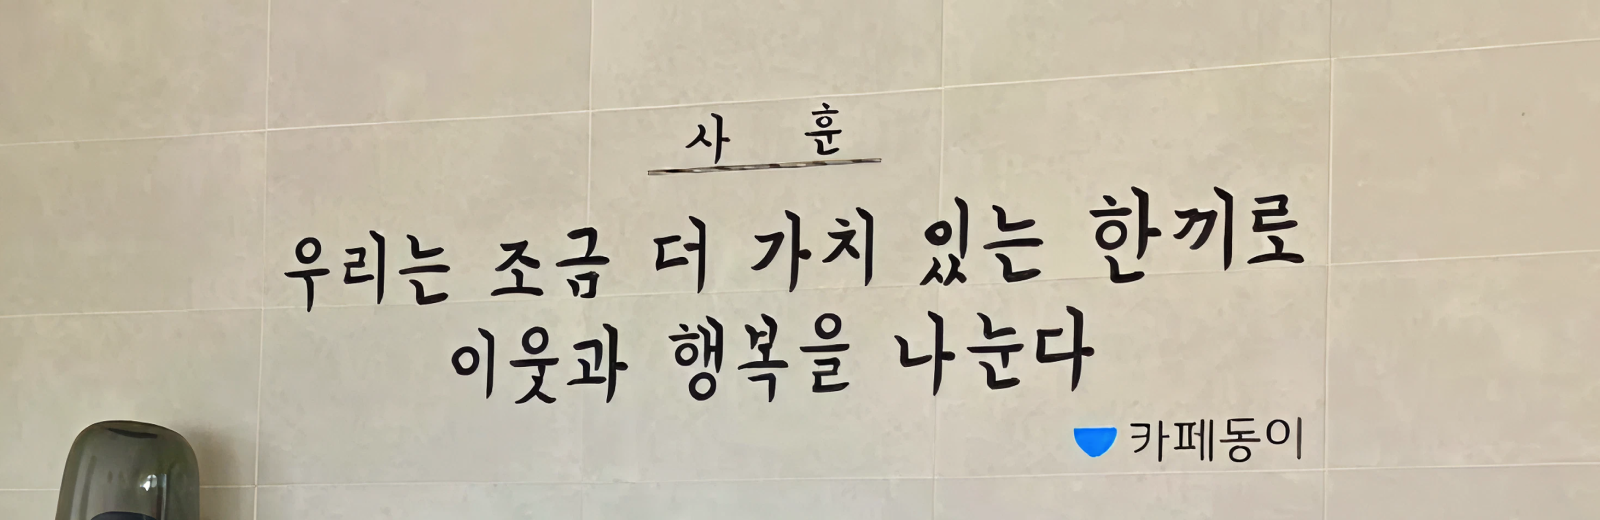 사 훈
우리는 조금 더 가치 있는 한끼로
이웃과 행복을 나눈다
카페동이